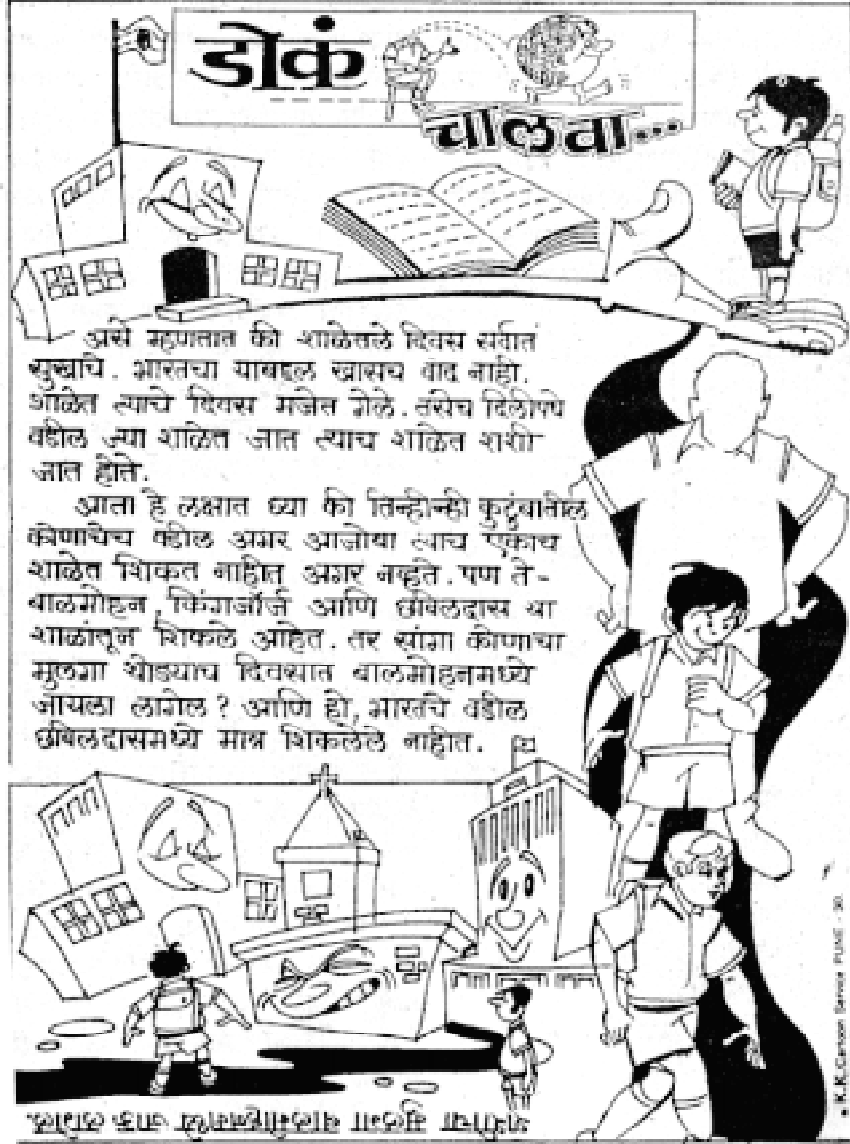 डोकं
चालवा...
असे म्हणतात की शाळेतले दिवस सर्वात
सुखाचे. भारतचा याबद्दल खासच वाद नाही.
शाळेत त्याचे दिवस मजेत गेले. तसेच दिलीपचे
वडील ज्या शाळेत जात त्याच शाळेत शशी
जात होते.
आता हे लक्षात घ्या की तिन्हीन्ही कुटुंबातील
कोणाचेच वडील अगर आजोबा त्याच एकाच
शाळेत शिकत नाहीत अगर नव्हते. पण ते-
बालमोहन, किंगजॉर्ज आणि छबिलदास या
शाळांतून शिकले आहेत. तर सांगा कोणाचा
मुलगा थोड्याच दिवसात बालमोहनमध्ये
जायला लागेल? आणि हो, भारतचे वडील
छबिलदासमध्ये मात्र शिकलेले नाहीत.
शशीचा मुलगा बालमोहनमध्ये जाऊ लागेल.
K.K.Cartoon Service PUNE - 30.